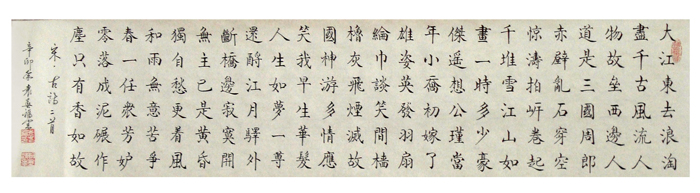 大江東去浪淘
盡千古風流人
物故壘西邊人
道是三國周郎
赤壁亂石穿空
惊濤拍岍卷起
千堆雪江山如
畫一時多少豪
傑遥想公瑾當
年小喬初嫁了
雄姿英發羽扇
綸巾談笑間檣
櫓灰飛煙滅故
國神游多情應
笑我早生華髮
人生如夢一尊
還酹江月驛外
斷橋邊寂寞開
無主已是黄昏
獨自愁更着風
和雨無意苦爭
春一任衆芳妒
零落成泥碾作
塵只有香如故
宋·古詞二首
辛卯冬